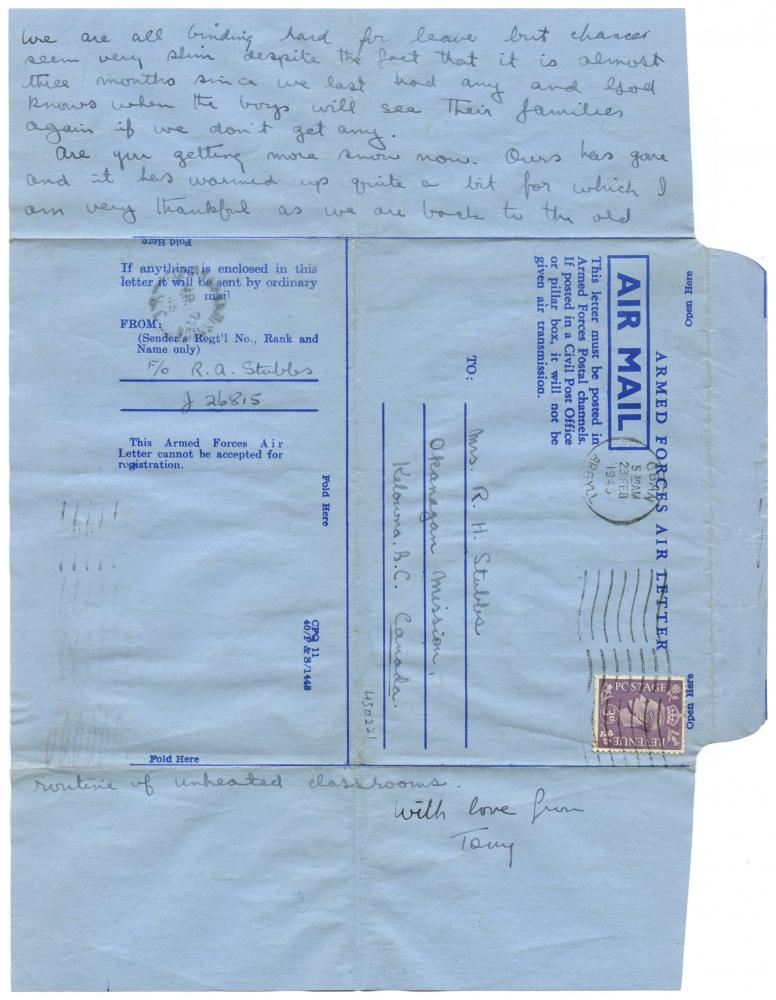 We are all binding hard for leave but chances
seem very slim despite the fact that it is almost
three months since we last had any and God
knows when the boys will see their families
again if we don't get any.
Are you getting more snow now. Ours has gone
and it has warmed up quite a bit for which I
am very thankful as we are back to the old
Fold Here
If anything is enclosed in this
letter it will be sent by ordinary
mail
FROM:
(Sender's Regt'l No., Rank and
Name only)
F/O R. A. Stubbs
J 26815
This Armed Forces Air
Letter cannot be accepted for
registration.
Fold Here
CPQ 11
40/P & S/1448
Fold Here
Open Here
ARMED FORCES AIR LETTER
AIR MAIL
This letter must be posted in
Armed Forces Postal channels.
If posted in a Civil Post Office
or pillar box, it will not be
given air transmission.
OBAN
5 AM
23 FEB
1945
ARGYLL
TO:
Mrs. R. H. Stubbs
Okanagan Mission,
Kelowna, B.C. Canada.
450221
Open Here
POSTAGE
3D
REVENUE
routine of unheated classrooms.
With love from
Tony